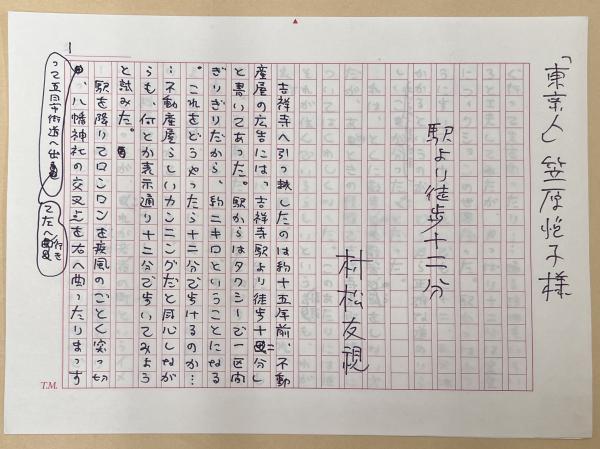 「東京人」笠原悦子様
駅より徒歩十二分
村松友視
吉祥寺へ引っ越したのは約十五年前、不動
産屋の広告には〝吉祥寺駅より徒歩十二分〟
と書いてあった。駅からはタクシーで一区間
ぎりぎりだから、約二キロということになる
。これをどうやったら十二分で歩けるのか…
…不動産屋らしいカンニングだと用心しなが
らも、何とか表示通り十二分で歩いてみよう
と試みた。
駅を降りてロンロンを疾風のごとく突っ切
り、八幡神社の交叉点を右へ曲ったりまっす
って五日市街道へ出
て左へ行き
1
T.M.